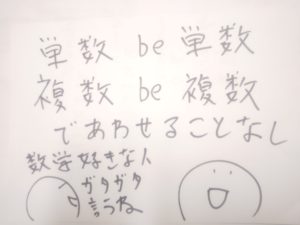 単数 be 単数
複数 be 複数
であわせることなし
数学好きな人
ガタガタ
言うね